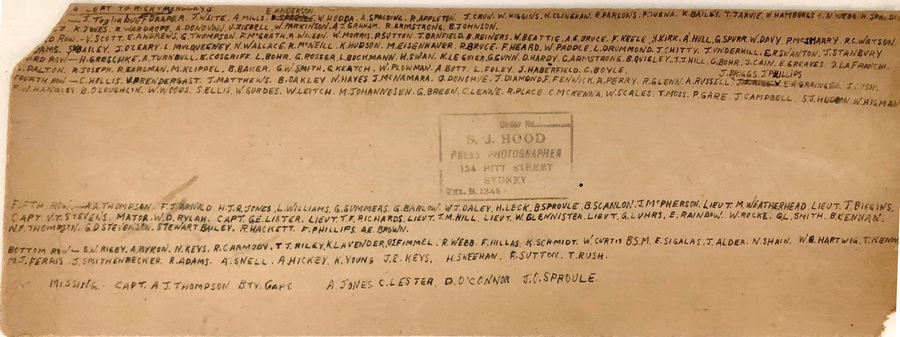 LEFT TO RIGHT
E. ANDERSON
J. Tagliabue F. DRAPER. J. WAITE. A. MILLS. W. HODDA. A. SPALDING. R. APPLETON. J. CROW. W. HIGGINS. K. CLINEHAN. B. PARSONS. F. VUENA. K. BAILEY. T. JARVIE. W. HAMBURG. N. WEBB. H. SPAL
K. JONES. R. WARDROPE. A. DONOVAN. N. ZIEBELL. W. PARKINSON. A. J. GRAHAM. R. ARMSTRONG. B. JOHNSON.
ROW.- V. SCOTT. E. ANDREWS. G. THOMPSON. F. McGRATH. A. WILSON. W. MORRIS. P. SUTTON. J. BANFIELD. B. REINERS. W. BEATTIE. A. E. BRUCE. V. KEELE. H. KIRK. A. HILL. G. SPURR. W. DAVY. P. McSHARRY. R. C. WATSON.
ADAMS. S. BAILEY. J. O'LEARY. L. MULQUEENEY. N. WALLACE. R. McNEILL. K. HUDSON. M. EISENHAUER. R. BRUCE. F. HEARD. W. PADDLE. L. DRUMMOND. J. CHITTY. J. UNDERHILL. E. R. SWANTON. T. STANBURY
ROW- H. GRESCHKE. A. TURNBULL. E. COSGRIFF. L. BOHR. G. ROSSER. L. BOCKMANN. H. SWAN. K. LE GUIER. G. GUNN. D. HARDY. C. ARMSTRONG. B. QUIGLEY. J. J. HILL. C. BOHR. J. CAIN. E. GREAVES. J. LA FRANCHI.
DALTON. R. JOSEPH. R. EARLSMAN. M. KLIPPEL. B. BAKER. G. W. SMITH. G. KEATCH. W. PLOWMAN. A. BUTT. L. FOLEY. J. HABERFIELD. C. BOYLE. J. BRIGGS. J. PHILLIPS
FOURTH ROW - C. HILLIS. V. PRENDERGAST. J. MATTHEWS. B. OAKLEY. N. HAYES. J. McNAMARA. O. DONOHUE. J. DIAMOND. S. FENWICK. A. PERRY. R. GLENN. A. RUSSELL. E. A. GRAINGER.
F. W. HANDLEY. B. O'LOUGHLIN. W. WOODS. S. ELLIS. W. GORDES. W. LEITCH. M. JOHANNESEN. G. BREEN. C. LENNE. R. PLACE. C. McKENNA. W. SCALES. T. MOSS. P. GARE. J. CAMPBELL. S. J. HUDSON. W. HIGMAN
Order No.
S. J. HOOD
PRESS PHOTOGRAPHER
124 PITT STREET
SYDNEY
TEL. B. 1345
FIFTH ROW - A. A. THOMPSON. F. J. ARNOLD. H. J. R. JONES. L. WILLIAMS. G. SUMMERS. G. BARLOW. W. J. DALEY. H. LECK. B. SPROULE. B. SCANLON. J. McPHERSON. LIEUT. M. WEATHERHEAD. LIEUT. J. BIGGINS.
CAPT. V. T. STEVENS. MAJOR. W. D. RYLAH. CAPT. G. E. LISTER. LIEUT. T. F. RICHARDS. LIEUT. J. M. HILL. LIEUT. W. GLENNISTER. LIEUT. G. LUHRS. E. RAINBOW. W. ROCKE. G. L. SMITH. B. KENNAN.
N. F. THOMPSON. G. D. STEVENSON. STEWART BAILEY. R. HACKETT. F. PHILLIPS. A. E. BROWN.
BOTTOM ROW - B. W. RIGBY. A. BYRON. N. KEYS. R. CARMODY. T. J. RILEY. K. LAVENDER. FIMMEL. R. WEBB. F. HILLAS. K. SCHMIDT. W. CURTIS B.S.M. E. SIGALAS. J. ALDER. N. SHAIN. W. G. HARTWIG. T. KENN
M. J. FERRIS. J. SMITHENBECKER. R. ADAMS. A. SNELL. A. HICKEY. K. YOUNG. J. E. KEYS. H. SHEEHAN. R. SUTTON. T. RUSH.
MISSING. CAPT. A. J. THOMPSON BTY. CAPT. A. JONES. C. LESTER. D. O'CONNOR. J. O. SPROULE.